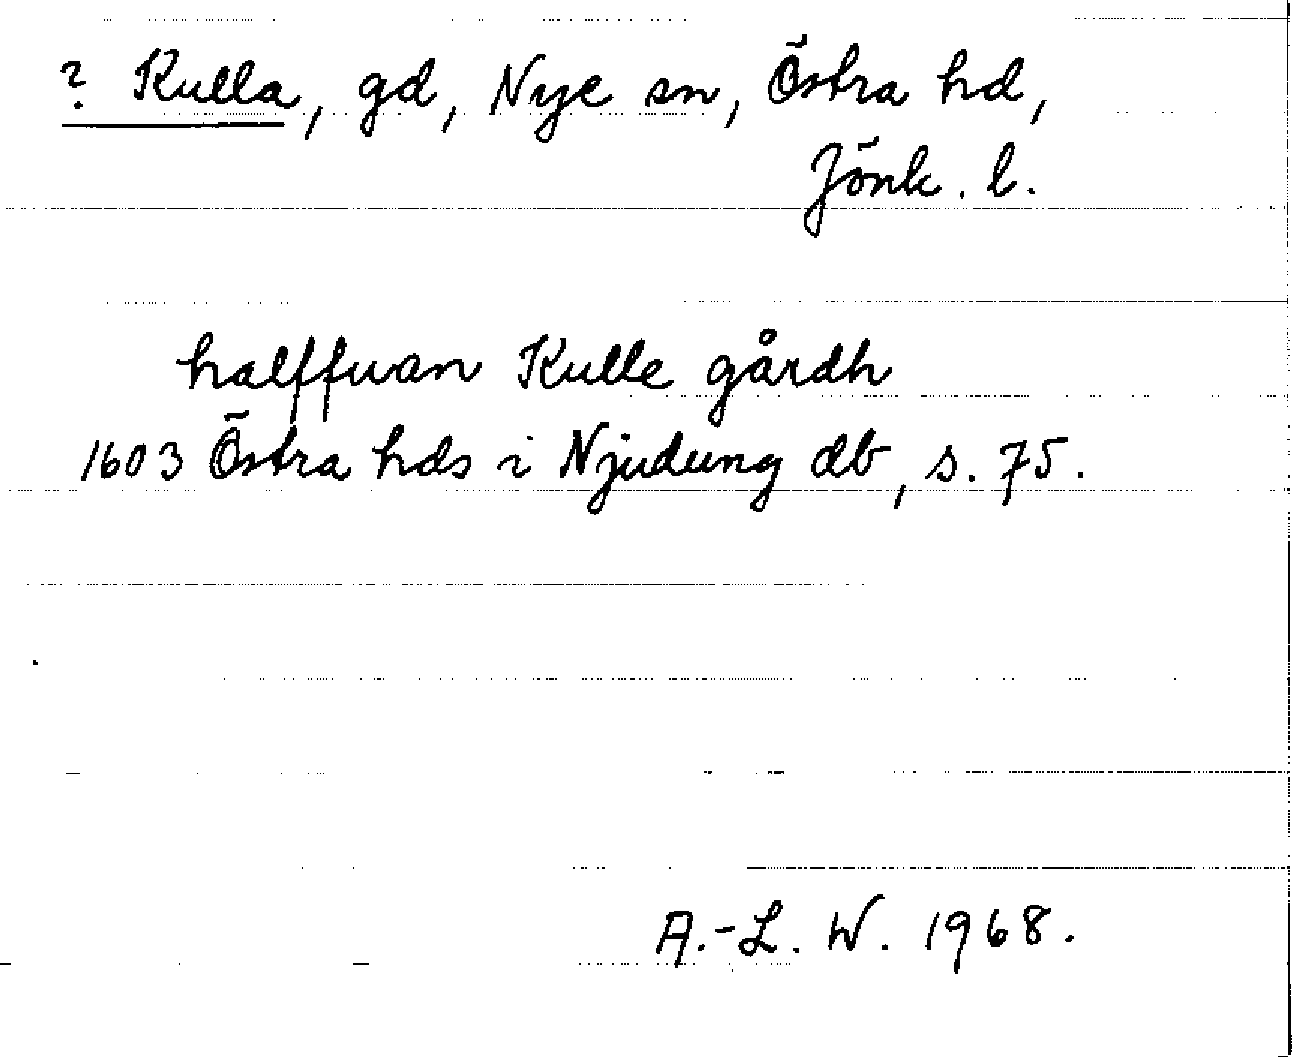 ? Kulla, gd, Nye sn, Östra hd,
Jönk. l.
halffwan Kulle gårdh
1603 Östra hds i Njudung db, s. 75.
A.-L. W. 1968.